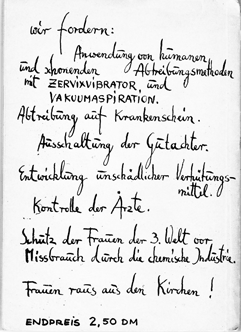 wir fordern:
Anwendung von humanen
und schonenden Abtreibungsmethoden
mit ZERVIXVIBRATOR, und
VAKUUMASPIRATION.
Abtreibung auf Krankenschein.
Ausschaltung der Gutachter.
Entwicklung unschädlicher Verhütungs-
mittel.
Kontrolle der Ärzte.
Schütz der Frauen der 3. Welt vor
Missbrauch durch die chemische Industrie.
Frauen raus aus den Kirchen !
ENDPREIS 2,50 DM